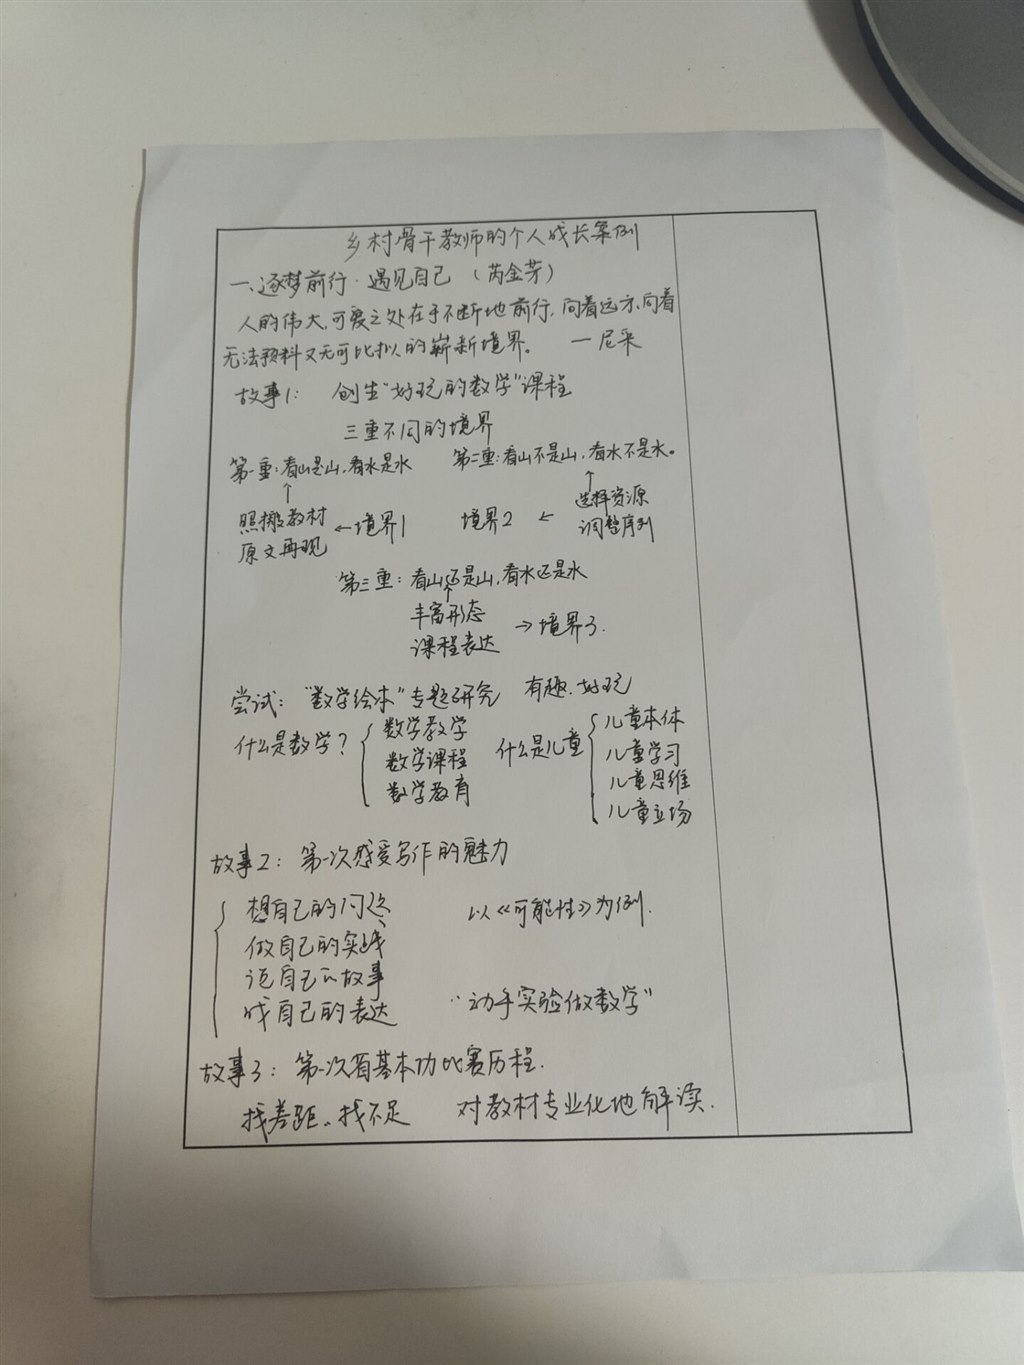 乡村骨干教师的个人成长案例
一、逐梦前行·遇见自己 （芮金芳）
人的伟大,可爱之处在于不断地前行,向着远方,向着
无法预料又无可比拟的崭新境界。 —尼采
故事1: 创生“好玩的数学”课程
三重不同的境界
第一重:看山是山,看水是水 第二重:看山不是山,看水不是水。
↑ ↑
照搬教材 ←境界1 境界2 ← 选择资源
原文再现 调整序列
第三重: 看山还是山,看水还是水
↑
丰富形态
课程表达 →境界3.
尝试: “数学绘本”专题研究 有趣.好玩
什么是数学? 数学教学 什么是儿童 儿童本体
数学课程 儿童学习
数学教育 儿童思维
儿童立场
故事2: 第一次感受写作的魅力
想自己的问题 以《可能性》为例.
做自己的实践
说自己的故事
成自己的表达 “动手实验做数学”
故事3: 第一次省基本功比赛历程.
找差距、找不足 对教材专业化地解读.